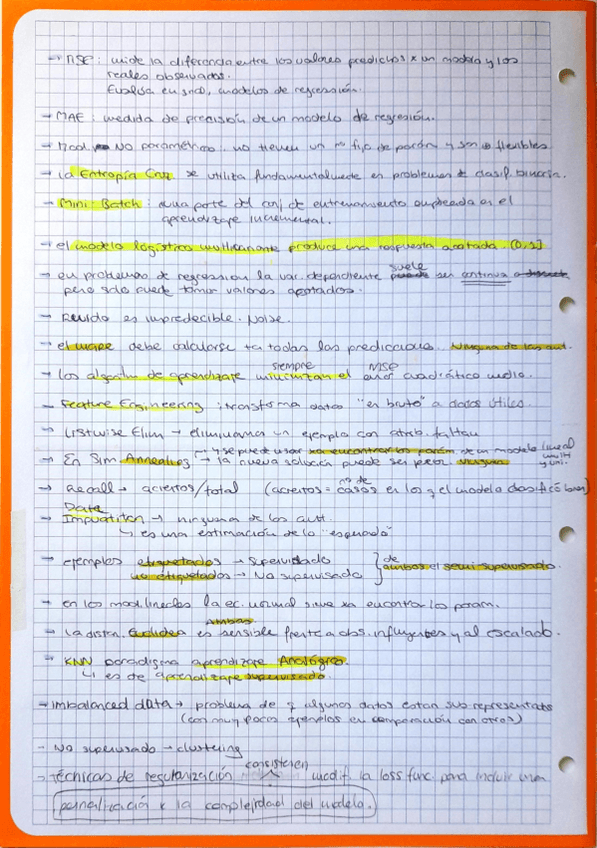 → MSE: mide la diferencia entre los valores predichos x un modelo y los
reales observados.
Evalúa en gral, modelos de regresión.
→ MAE: medida de precisión de un modelo de regresión.
→ Mod. No paramétricos: no tienen un nº fijo de parám y son + flexibles
→ La Entropía Cruz. se utiliza fundamentalmente en problemas de clasif. binaria.
→ Mini-Batch: una parte del conj de entrenamiento empleada en el
aprendizaje incremental.
→ el modelo logístico multivariante produce una respuesta acotada. (0,1]
→ en problemas de regression la var. dependiente suele ser continua o
pero solo puede tomar valores acotados.
→ Ruido es impredecible. Noise.
→ el debe calcularse xa todas las predicciones. Ninguna de las ant.
→ los algoritm de aprendizaje siempre minimizan el MSE error cuadrático medio.
→ Feature Engineering: transforma datos "en bruto" a datos útiles.
→ Listwise Elim → eliminamos un ejemplo con atrib. faltan
→ y se puede usar xa encontrar los parám. de un modelo lineal
→ En Sim. Annealing → la nueva solución puede ser peor. multi y uni.
→ Recall → aciertos/total (aciertos = nº de casos en los q el modelo clasificó bien)
Data
→ Imputation → ninguna de las ant.
↳ es una estimación de lo "esperado"
→ ejemplos etiquetados → Supervisado
no etiquetados → No supervisado } de ambos el semi supervisado.
→ en los mod. lineales la ec. normal sirve xa encontrar los param.
Ambas
→ La distan. Euclidea es sensible frente a obs. influyentes y al escalado.
→ KNN paradigma aprendizaje Analógico.
↳ es de aprendizaje supervisado.
→ Imbalanced data → problema de q algunos datos estan sub representats
(con muy pocos ejemplos en comparación con otros)
- No supervisado → clustering
- Técnicas de regularización consisten en modif. la loss func. para incluir una
penalización x la complejidad del modelo.